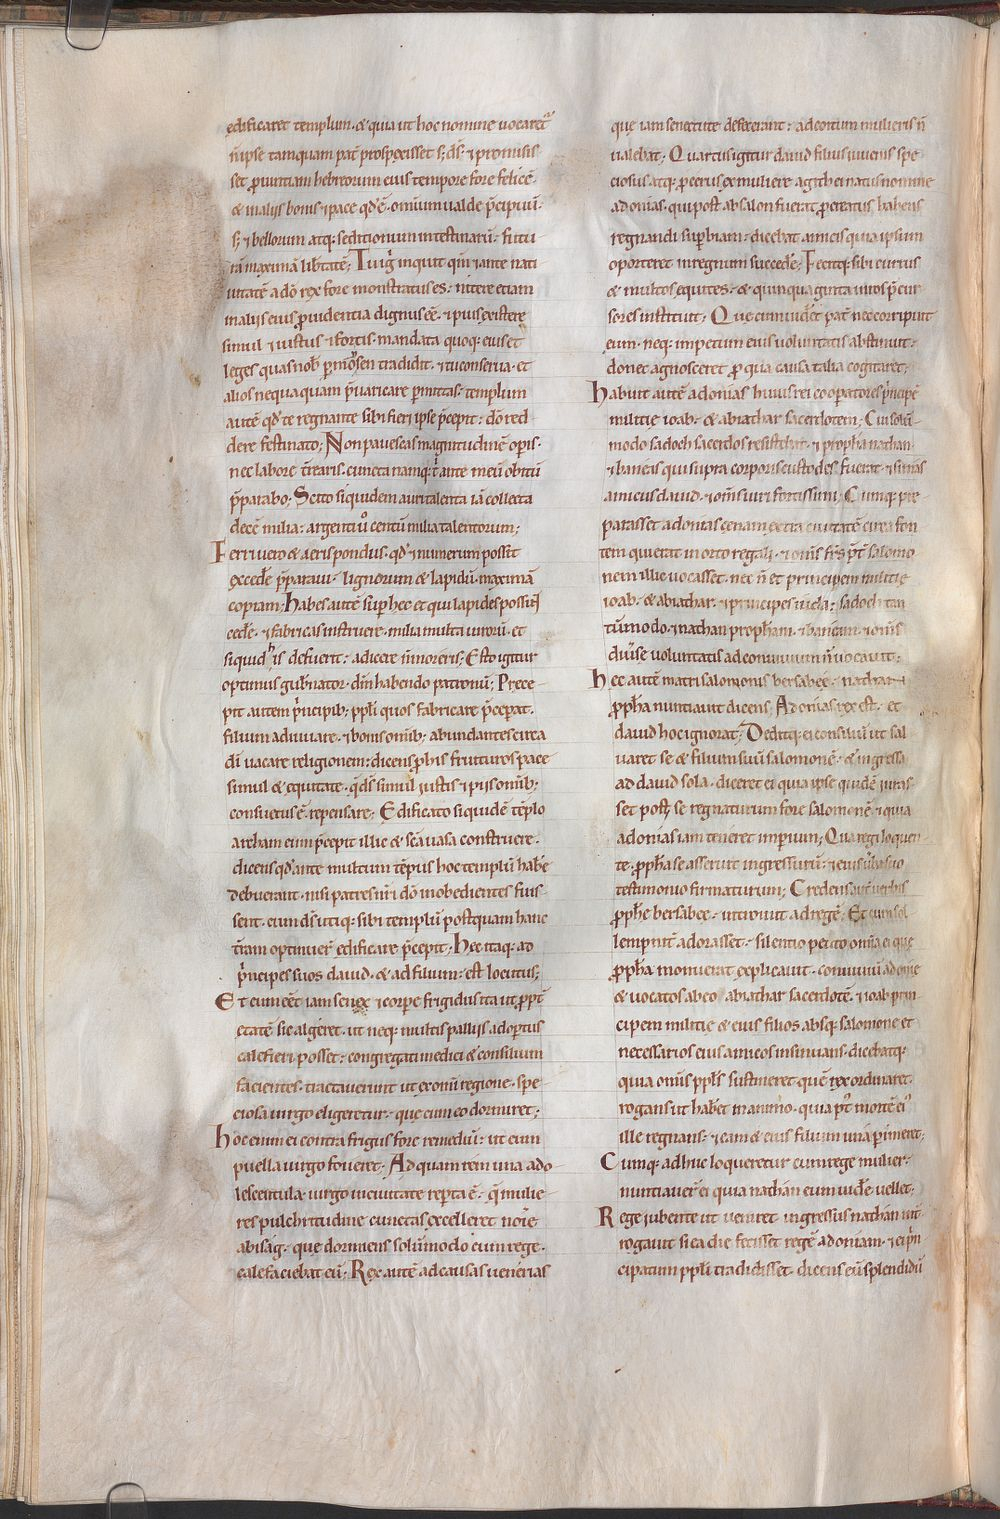 edificaret templum. & quia ut hoc nomine uocaret᷑
n̄ ipse tamquam pat̄ prospexisset s; d̄s. ⁊ promisis-
set ꝓuintiam hebreorum eius tempore fore felicē.
& malijs bonis ⁊ pace qd̄ ē omnium ualde p̄cipuū.
s; ⁊ bellorum atq; seditionum intestinarū. futu
rā maximā lib̄tatē; Tu ig̑ inquit qm̄ ⁊ ante nati
uitatē a dō rex fore monstratus es. nitere etiam
in alijs eius ꝓuidentia dignus ēē. ⁊ pius existere
simul ⁊ iustus ⁊ fortis. mandata quoq; eius et
leges quas nob̄ p moy̑sen tradidit. ⁊ tu conserua. et
alios nequaquam p̄uaricare pmittas. templum
autē qd̄ te regnante sibi fieri ipse p̄cepit: dō red
dere festinato; Non pauescas magnitudinē opis.
nec labore t̄rearis. cuncta namq; t̄ ante meū obitū
p̄parabo; Scito siquidem auri talenta iā collecta
decē milia: argenti ů centū milia talentorum;
Ferri uero & aeris pondus. qd̄ ⁊ numerum possit
excedē p̄paraui. lignorum & lapidū maximā
copiam; Habes autē sup hec et qui lapides possint
cedē. ⁊ fabricas instruere. milia multa uirorū. et
siquid his defuerit: adicere n̄ moreris; Esto igitur
optimus gub̄nator. dm̄ habendo patronū; Prece-
pit autem p̄ncipib; ppl̄i quos fabricare p̄ceperat.
filium adiuuare. ⁊ bonis omīb; abundantes circa
dī uacare religionem: dicens ꝓbis fruituros pace
simul & equitate. q̄ d̄s simul iustis ⁊ pijs omīb;
consuetus ē. repensare; Edificato siquidē tēplo
archam eum p̄cepit illic & sc̄a uasa construere.
dicens qd̄ ante multum tēpus hoc templū hab̄e
debuerant. nisi patres nr̄i dō inobedientes fuis-
sent. cum d̄s utiq; sibi templū postquam hanc
t̄ram optinuer̄ edificare p̄cepit; Hec itaq; ad
p̄ncipes suos dauid. & ad filium: est locutus;
Et cum eēt iam senex ⁊ corpe frigidus ita ut ꝓpt̄
etatē sic algeret. ut neq; multis pallijs adoptus
calefieri posset: congregati medici & consilium
facientes. tractauerunt ut ex omī regione. spe-
ciosa uirgo eligeretur. que cum eo dormiret;
Hoc enim ei contra frigus fore remediū: ut eum
puella uirgo foueret. Ad quam rem una ado-
lescentula uirgo in ciuitate repta ē. q̄ mulie-
res pulchritudine cunctas excelleret noīe
abisag. que dormiens solūmodo cum rege.
calefaciebat eū; Rex autē ad causas uenerias
que iam senectute defecerant: ad coitum mulieris n̄
ualebat; Quartus igitur dauid filius iuuenis spe
ciosus atq; procerus ex muliere agithei natus nomine
adonias. qui post absalon fuerat ꝓcreatus habens
regnandi supbiam: dicebat amicis quia ipsum
oporteret in regnum succedē; Fecitq; sibi currus
& multos equites. & quinquaginta uiros p̄cur
sores instituit; Que cum uidēt pat̄ nec corripuit
eum. neq; impetum eius uoluntatis abstinuit:
donec agnosceret ꝓ qua causa talia cogitaret;
Habuit autē adonias huius rei cooperatores p̄ncipē
militie ioab. & abiathar sacerdotem; Cui solū
modo sadoch sacerdos resistebat. ⁊ propha nathan
⁊ baneas qui supra corporis custodes fuerat ⁊ simas
amicus dauid. ⁊ om̄s uiri fortissimi; Cumq; pre-
parasset adonias cenam extra ciuitatē circa fon
tem qui erat in orto regali. ⁊ om̄s fr̄s p̄t̄ salomo
nem illic uocasset. nec n̄ et principem militie
ioab. & abiathar. ⁊ principes iuda: sadoch tan
tūmodo. ⁊ nathan propham. ⁊ baneam. ⁊ om̄s
diūse uoluntatis ad conuiuium n̄ uocauit;
Hec autē matri salomonis bersabee. nathan
ꝓpha nuntiauit dicens; Adonias rex est. et
dauid hoc ignorat; Deditq; ei consiliū ut sal
uaret se & filium suū salomonē. & ingressa
ad dauid sola. diceret ei quia ipse quidē iuras-
set post se regnaturum fore salomonē. ⁊ quia
adonias iam teneret imperium; Qua regi loquen-
te. ꝓpha se asseruit ingressurū. ⁊ eius ūba suo
testimonio firmaturum; Credens autē uerbis
ꝓphe bersabee. introiuit ad regē; Et cum sol-
lempnit̄ adorasset. silentio petito omīa ei que
ꝓpha monuerat explicauit. conuiuiū adonie
& uocatos ab eo abiathar sacerdotē. ⁊ ioab prin-
cipem militie & eius filios absq; salomone et
necessarios eius amicos insinuans. dicebatq;
quia om̄is ppl̄s sustineret quē rex ordinaret.
rogans ut hab̄et in animo. quia p̄t morte ei᷒
ille regnans. ⁊ eam & eius filium una pimeret;
Cumq; adhuc loqueretur cum rege mulier.
nuntiauer̄ ei quia nathan eum uidē uellet;
Rege iubente ut ueniret ingressus nathan int̄
rogauit si ea die fecisset regē adoniam. ⁊ ei p̄n-
cipatum ppl̄i tradidisset. dicens eū splendidū